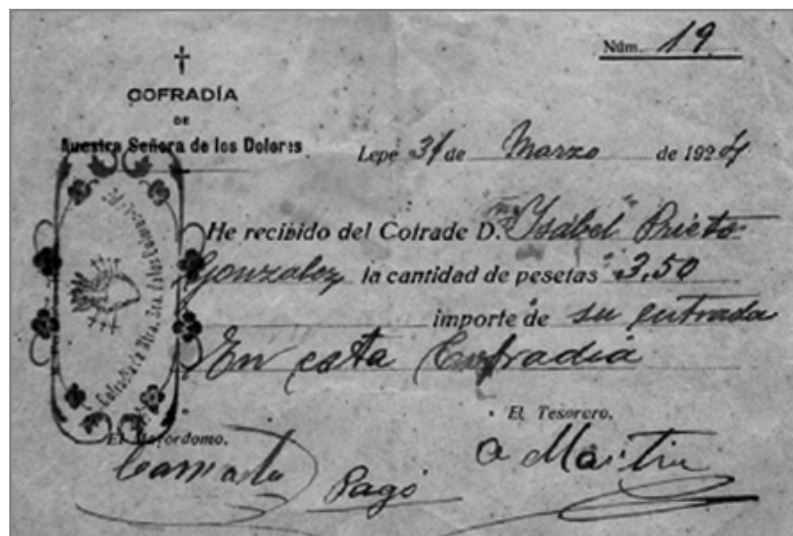 Núm. 19
COFRADÍA
DE
Nuestra Señora de los Dolores
Lepe 31 de Marzo de 1924
He recibido del Cofrade D.ª Ysabel Prieto
Gonzalez la cantidad de pesetas 3,50
importe de su entrada
En esta Cofradia
Cofradía de Ntra. Sra. de los Dolores
El Mayordomo,
El Tesorero,
Pagó
a Martin